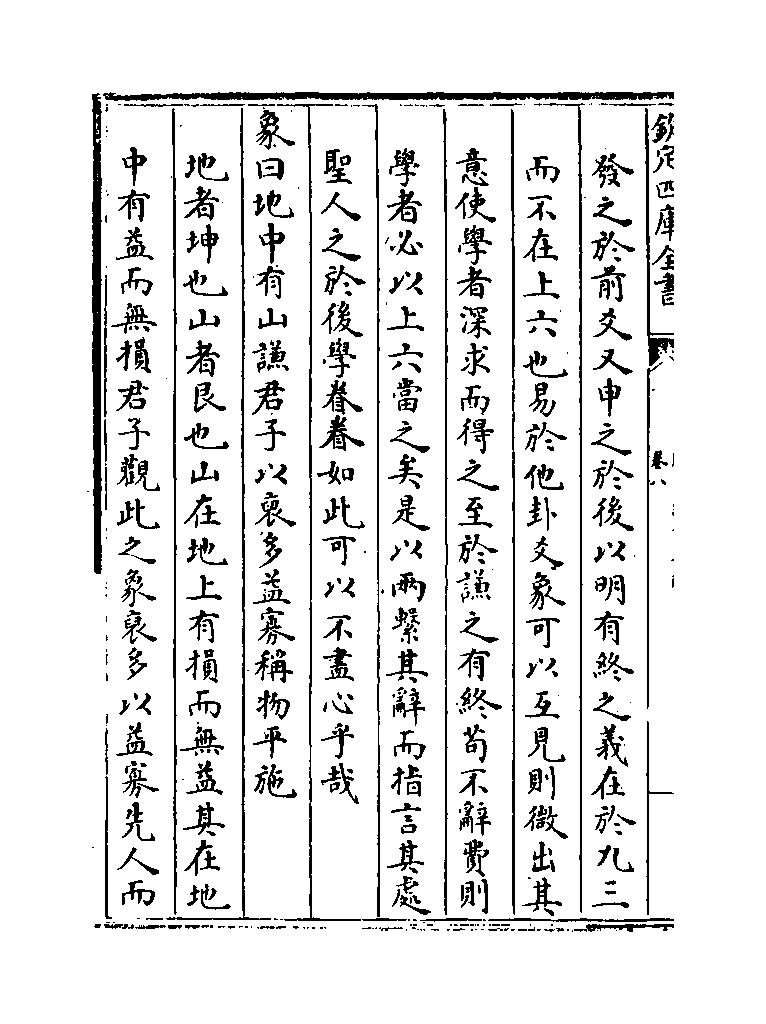 欽定四庫全書
卷八
發之於前爻又申之於後以明有終之義在於九三
而不在上六也易於他卦爻象可以互見則微出其
意使學者深求而得之至於謙之有終苟不辭費則
學者必以上六當之矣是以兩繫其辭而指言其處
聖人之於後學眷眷如此可以不盡心乎哉
象曰地中有山謙君子以裒多益寡稱物平施
地者坤也山者艮也山在地上有損而無益其在地
中有益而無損君子觀此之象裒多以益寡先人而